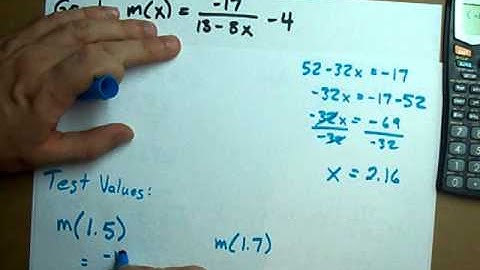 m(x) = -17 / 13 - 8x - 4
52 - 32x = -17
-32x = -17 - 52
-32x = -69
-32 -32
x = 2.16
Test Values:
m(1.5)
m(1.7)
=